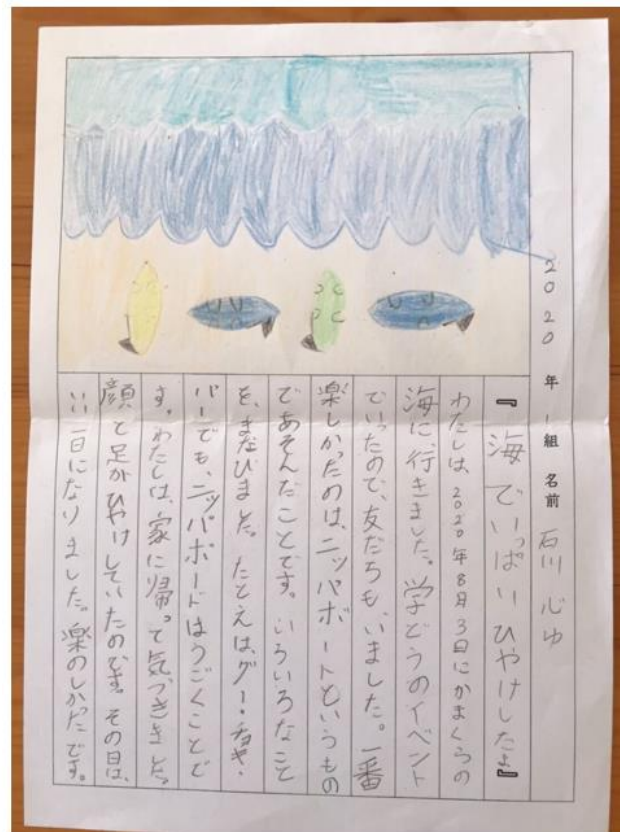 2020年1組 名前 石川 心ゆ
『海でいっぱいひやけしたよ』
わたしは、2020年8月3日にかまくらの
海に、行きました。学どうのイベント
でいったので、友だちも、いました。一番
楽しかったのは、ニッパボートというもの
であそんだことです。いろいろなこと
を、まなびました。たとえは、グー・チョキ・
パーでも、ニッパボードはうごくことで
す。わたしは、家に帰って気づききした。
顔と足がひやけしていたのです。その日は、
いい一日になりました。楽のしかったです。